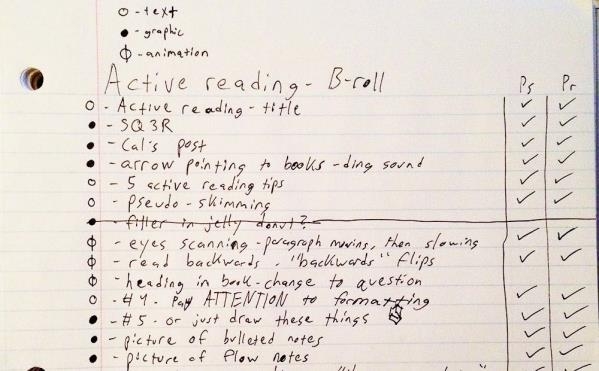 ○ - text
● - graphic
⌽ - animation
Active reading - B-roll Ps Pr
○ - Active reading - title ✓ ✓
● - SQ3R ✓ ✓
● - Cal's post ✓ ✓
● - arrow pointing to books - ding sound ✓ ✓
○ - 5 active reading tips ✓ ✓
○ - pseudo - skimming ✓ ✓
● - filler in jelly donut?
⌽ - eyes scanning - paragraph moving, then slowing ✓ ✓
⌽ - read backwards. "backwards" flips ✓ ✓
⌽ - heading in book - change to question
○ - #4. Pay ATTENTION to formatting ✓ ✓
● - #5 - or just draw these things ✓ ✓
● - picture of bulleted notes ✓ ✓
● - picture of flow notes ✓ ✓